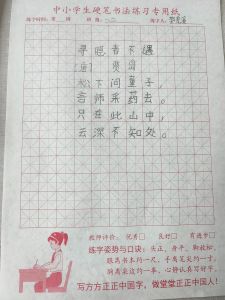 中小学生硬笔书法练习专用纸
寻隐者不遇
(唐) 贾岛
松下问童子,
言师采药去。
只在此山中,
云深不知处。
教师评价: 优秀□ 良好□ 有进步□
练字姿势与口诀: 头正、身平、脚放松,
眼离书本约一尺, 手离笔尖约一寸,
胸离桌边约一拳, 心静认真写好字。
写方方正正中国字, 做堂堂正正中国人!